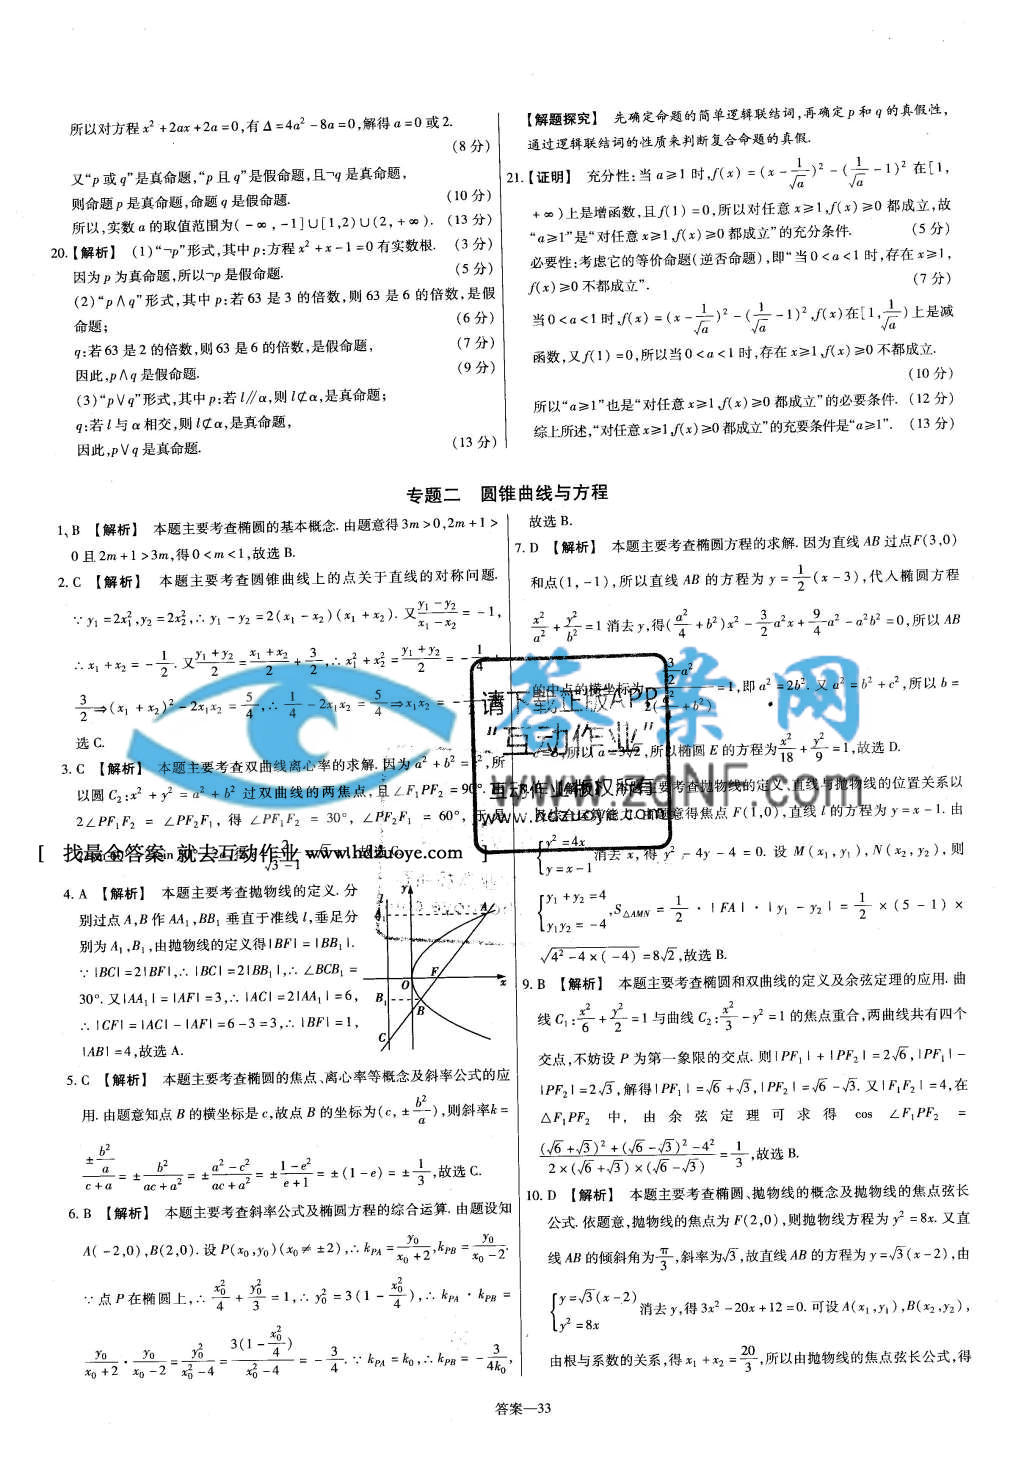 所以对方程 x²+2ax+2a=0,有 Δ=4a²-8a=0,解得 a=0 或 2.
(8 分)
又“p 或 q”是真命题,“p 且 q”是假命题,且¬q 是真命题,
则命题 p 是真命题,命题 q 是假命题. (10 分)
所以,实数 a 的取值范围为(-∞,-1]∪[1,2)∪(2,+∞). (13 分)
20.【解析】 (1)“¬p”形式,其中 p:方程 x²+x-1=0 有实数根. (3 分)
因为 p 为真命题,所以¬p 是假命题. (5 分)
(2)“p∧q”形式,其中 p:若 63 是 3 的倍数,则 63 是 6 的倍数,是假
命题; (6 分)
q:若 63 是 2 的倍数,则 63 是 6 的倍数,是假命题, (7 分)
因此,p∧q 是假命题. (9 分)
(3)“p∨q”形式,其中 p:若 l∥α,则 l⊄α,是真命题;
q:若 l 与 α 相交,则 l⊄α,是真命题,
因此,p∨q 是真命题. (13 分)
【解题探究】 先确定命题的简单逻辑联结词,再确定 p 和 q 的真假性,
通过逻辑联结词的性质来判断复合命题的真假.
21.【证明】 充分性:当 a≥1 时,f(x)=(x-1/√a)²-(1/√a-1)² 在[1,
+∞)上是增函数,且 f(1)=0,所以对任意 x≥1,f(x)≥0 都成立,故
“a≥1”是“对任意 x≥1,f(x)≥0 都成立”的充分条件. (5 分)
必要性:考虑它的等价命题(逆否命题),即“当 0<a<1 时,存在 x≥1,
f(x)≥0 不都成立”. (7 分)
当 0<a<1 时,f(x)=(x-1/√a)²-(1/√a-1)²,f(x)在[1,1/√a)上是减
函数,又 f(1)=0,所以当 0<a<1 时,存在 x≥1,f(x)≥0 不都成立.
(10 分)
所以“a≥1”也是“对任意 x≥1,f(x)≥0 都成立”的必要条件. (12 分)
综上所述,“对任意 x≥1,f(x)≥0 都成立”的充要条件是“a≥1”. (13 分)
专题二 圆锥曲线与方程
1. B 【解析】 本题主要考查椭圆的基本概念. 由题意得 3m>0,2m+1>
0 且 2m+1>3m,得 0<m<1,故选 B.
2. C 【解析】 本题主要考查圆锥曲线上的点关于直线的对称问题.
∵y₁=2x₁²,y₂=2x₂²,∴y₁-y₂=2(x₁-x₂)(x₁+x₂). 又 (y₁-y₂)/(x₁-x₂)=-1,
∴x₁+x₂=-1/2. 又 (y₁+y₂)/2=(x₁+x₂)/2+3/2,∴x₁²+x₂²=(y₁+y₂)/2=-1/4+
3/2⇒(x₁+x₂)²-2x₁x₂=5/4,∴1/4-2x₁x₂=5/4⇒x₁x₂=-
选 C.
3. C 【解析】 本题主要考查双曲线离心率的求解. 因为 a²+b²=c²,所
以圆 C₂:x²+y²=a²+b² 过双曲线的两焦点,且∠F₁PF₂=90°.
2∠PF₁F₂=∠PF₂F₁,得∠PF₁F₂=30°,∠PF₂F₁=60°,于是
[ 找最全答案 就去互动作业 www.hdzuoye.com ]
4. A 【解析】 本题主要考查抛物线的定义. 分
别过点 A,B 作 AA₁,BB₁ 垂直于准线 l,垂足分
别为 A₁,B₁,由抛物线的定义得|BF|=|BB₁|.
∵|BC|=2|BF|,∴|BC|=2|BB₁|,∴∠BCB₁=
30°. 又|AA₁|=|AF|=3,∴|AC|=2|AA₁|=6,
∴|CF|=|AC|-|AF|=6-3=3,∴|BF|=1,
|AB|=4,故选 A.
y
l
A
O
F
x
B₁
B
C
5. C 【解析】 本题主要考查椭圆的焦点、离心率等概念及斜率公式的应
用. 由题意知点 B 的横坐标是 c,故点 B 的坐标为(c,±b²/a),则斜率 k=
(±b²/a)/(c+a)=±b²/(ac+a²)=±(a²-c²)/(ac+a²)=±(1-e²)/(e+1)=±(1-e)=±1/3,故选 C.
6. B 【解析】 本题主要考查斜率公式及椭圆方程的综合运算. 由题设知
A(-2,0),B(2,0). 设 P(x₀,y₀)(x₀≠±2),∴k_PA=y₀/(x₀+2),k_PB=y₀/(x₀-2).
∵点 P 在椭圆上,∴x₀²/4+y₀²/3=1,∴y₀²=3(1-x₀²/4),∴k_PA·k_PB=
y₀/(x₀+2)·y₀/(x₀-2)=y₀²/(x₀²-4)=3(1-x₀²/4)/(x₀²-4)=-3/4. ∵k_PA=k₀,∴k_PB=-3/(4k₀),
故选 B.
7. D 【解析】 本题主要考查椭圆方程的求解. 因为直线 AB 过点 F(3,0)
和点(1,-1),所以直线 AB 的方程为 y=1/2(x-3),代入椭圆方程
x²/a²+y²/b²=1 消去 y,得(a²/4+b²)x²-3/2a²x+9/4a²-a²b²=0,所以 AB
的中点的横坐标为 =1,即 a²=2b². 又 a²=b²+c²,所以 b=
c=3,所以 a=3√2,所以椭圆 E 的方程为 x²/18+y²/9=1,故选 D.
【解析】 本题主要考查抛物线的定义、直线与抛物线的位置关系以
及综合运算能力. 由题意得焦点 F(1,0),直线 l 的方程为 y=x-1. 由
{y²=4x
y=x-1 消去 x,得 y²-4y-4=0. 设 M(x₁,y₁),N(x₂,y₂),则
{y₁+y₂=4
y₁y₂=-4,S△AMN=1/2·|FA|·|y₁-y₂|=1/2×(5-1)×
√(4²-4×(-4))=8√2,故选 B.
9. B 【解析】 本题主要考查椭圆和双曲线的定义及余弦定理的应用. 曲
线 C₁:x²/6+y²/2=1 与曲线 C₂:x²/3-y²=1 的焦点重合,两曲线共有四个
交点,不妨设 P 为第一象限的交点. 则|PF₁|+|PF₂|=2√6,|PF₁|-
|PF₂|=2√3,解得|PF₁|=√6+√3,|PF₂|=√6-√3. 又|F₁F₂|=4,在
△F₁PF₂ 中,由余弦定理可求得 cos∠F₁PF₂=
((√6+√3)²+(√6-√3)²-4²)/(2×(√6+√3)×(√6-√3))=1/3,故选 B.
10. D 【解析】 本题主要考查椭圆、抛物线的概念及抛物线的焦点弦长
公式. 依题意,抛物线的焦点为 F(2,0),则抛物线方程为 y²=8x. 又直
线 AB 的倾斜角为 π/3,斜率为√3,故直线 AB 的方程为 y=√3(x-2),由
{y=√3(x-2)
y²=8x 消去 y,得 3x²-20x+12=0. 可设 A(x₁,y₁),B(x₂,y₂),
由根与系数的关系,得 x₁+x₂=20/3,所以由抛物线的焦点弦长公式,得
请下载正版APP
“互动作业”
互动作业版权所有
www.hdzuoye.com
答案网
www.zqnf.com
答案—33